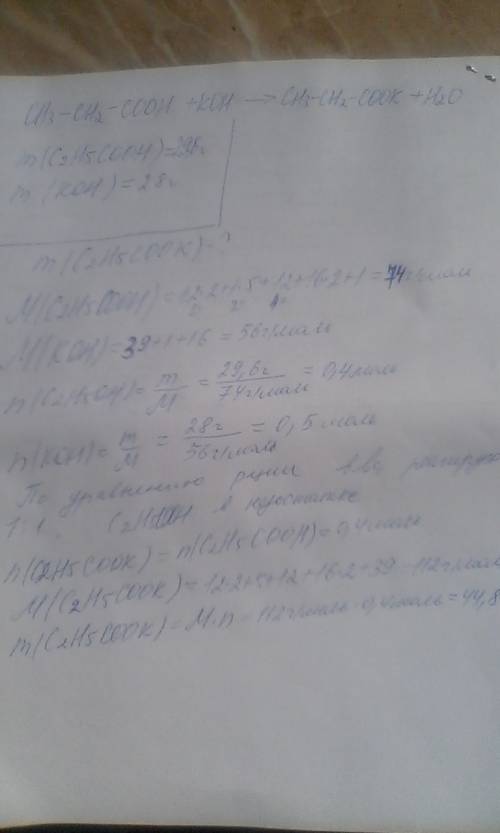 CH3-CH2-COOH + KOH → CH3-CH2-COOK + H2O
m(C2H5COOH)=29,6г
m(KOH)=28г
m(C2H5COOK)-?
M(C2H5COOH)=12·2+1·5+12+16·2+1=74г/моль
M(KOH)=39+1+16=56г/моль
n(C2H5COOH)=m/M=29,6г/74г/моль=0,4моль
n(KOH)=m/M=28г/56г/моль=0,5моль
По уравнению р-ции в-ва
1:1. в недостатке
n(C2H5COOK)=n(C2H5COOH)=0,4моль
M(C2H5COOK)=12·2+5+12+16·2+39=112г/моль
m(C2H5COOK)=M·n=112г/моль·0,4моль=44,8